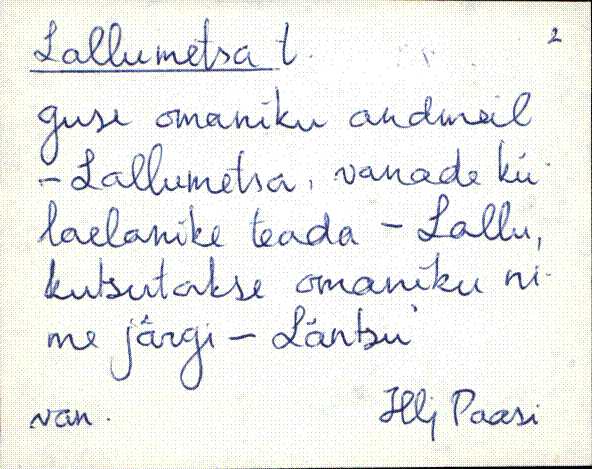 Lallumetsa t. 2
guse omaniku andmeil
- Lallumetsa, vanade kü-
laelanike teada - Lallu,
kutsutakse omaniku ni-
me järgi - Läntsu'
van. Hlj Paasi